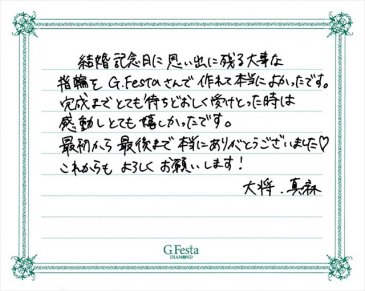 結婚記念日に思い出に残る大事な
指輪を G.Festaさんで作れて本当によかったです。
完成までとても待ちどおしく受けとった時は
感動しとても嬉しかったです。
最初から最後まで本当にありがとうございました♡
これからもよろしくお願いします!
大将.真森
G.Festa
DIAMOND